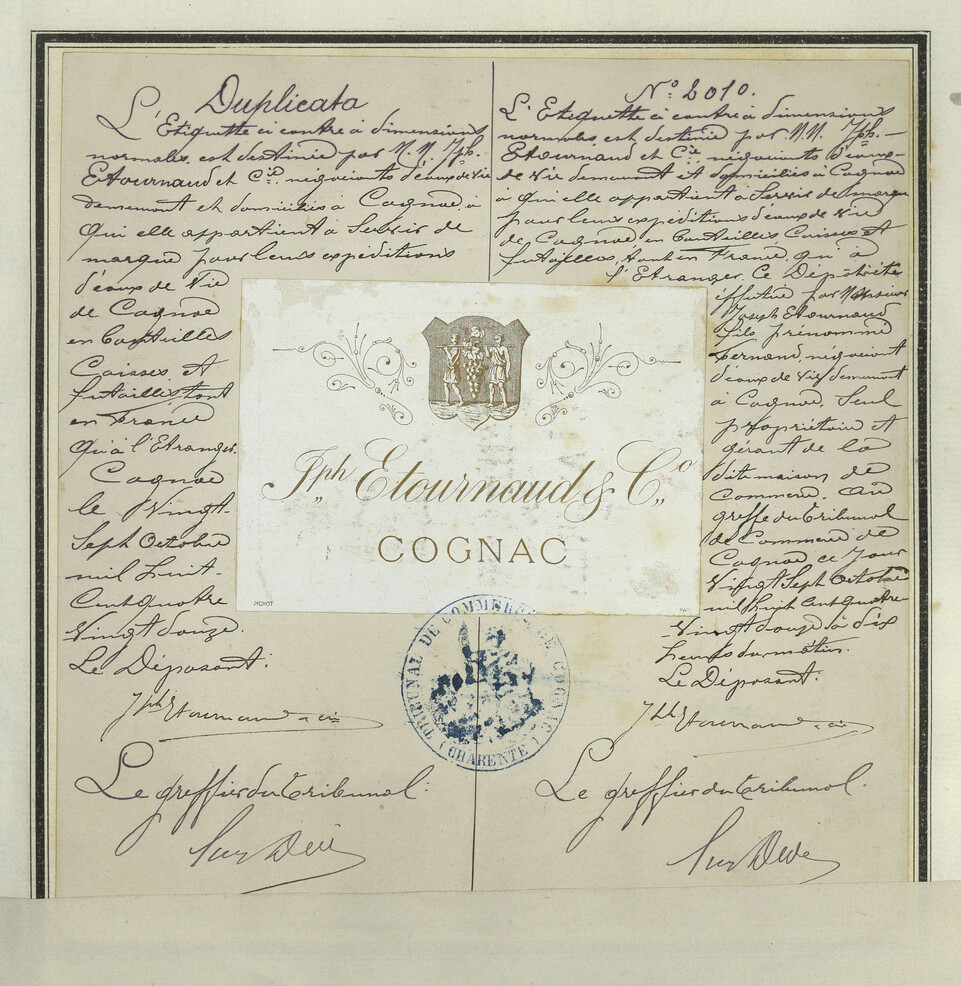 Duplicata
L'Etiquette ci contre à dimensions
normales, est destinée par M.M. Jph.
Etournaud et Cie, négociants d'eaux de Vie
demeurant et domiciliés à Cognac, à
qui elle appartient à Servir de
marque pour leurs expéditions
d'eaux de Vie
de Cognac
en Bouteilles
Caisses et
futailles, tant
en France
qu'à l'Etranger.
Cognac
le Vingt-
Sept Octobre
mil huit-
Cent quatre
Vingt douze.
Le Déposant:
Jph Etournaud & Cie
Le greffier du Tribunal:
No 2010.
L'Etiquette ci contre à dimensions
normales, est destinée par M.M. Jph.-
Etournaud et Cie, négociants d'eaux-
de Vie demeurant et domiciliés à Cognac
à qui elle appartient à Servir de marque
pour leurs expéditions d'eaux de Vie
de Cognac en Bouteilles Caisses et
futailles, tant en France, qu'à
l'Etranger. Ce Dépôt a été
effectué par Monsieur
Joseph Etournaud
fils prénommé
Fernand, négociant
d'eaux de Vie, demeurant
à Cognac, Seul
propriétaire et
gérant de la
dite maison de
Commerce. Au
greffe du Tribunal
de Commerce de
Cognac ce Jour
Vingt Sept Octobre
mil huit Cent quatre
Vingt douze à dix
heures du matin.
Le Déposant:
Jph Etournaud & Cie
Le greffier du Tribunal.
Jph Etournaud & Co
COGNAC
PICHOT
TRIBUNAL DE COMMERCE DE COGNAC
(CHARENTE)